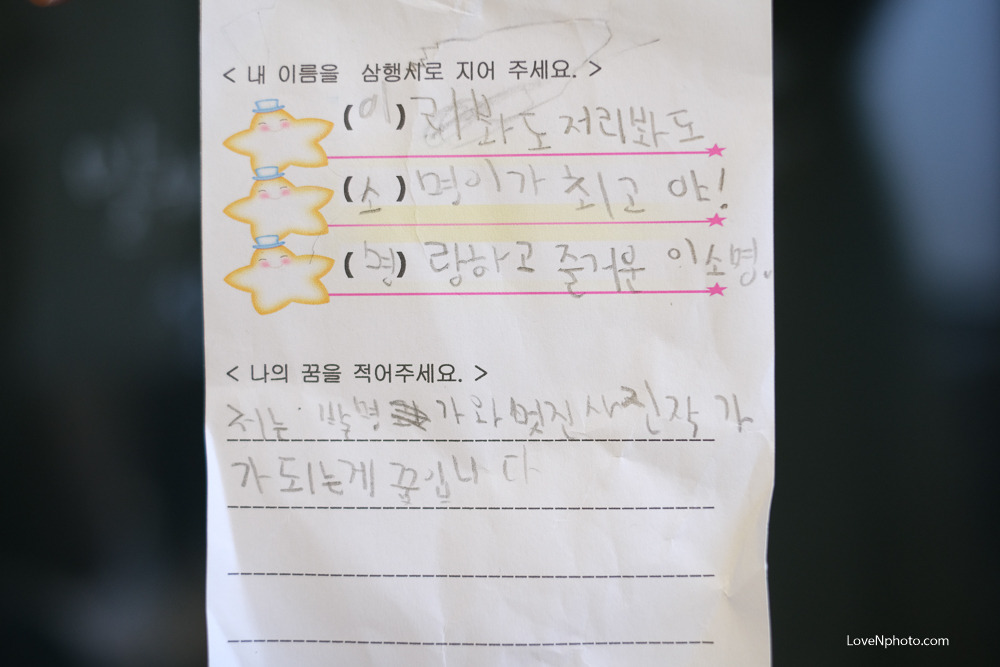 < 내 이름을 삼행시로 지어 주세요. >
(이) 리봐도 저리봐도
(소) 명이가 최고 야!
(명) 랑하고 즐거운 이소명.
< 나의 꿈을 적어주세요. >
저는 발명 가와 멋진 사진작 가
가 되는게 꿈입니다
LoveNphoto.com